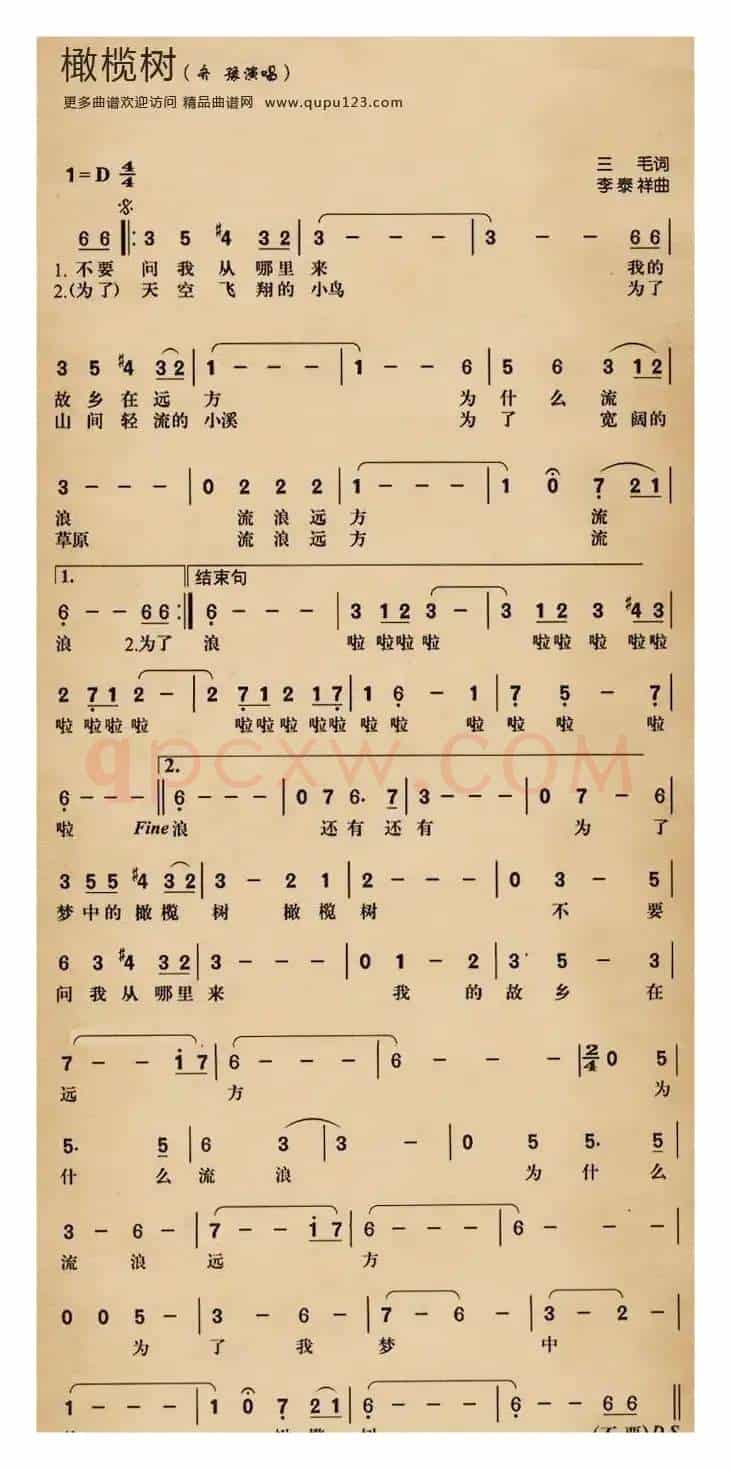 橄榄树(齐 豫演唱)
更多曲谱欢迎访问 精品曲谱网 www.qupu123.com
三 毛词
1=D 4/4 李泰祥曲
6 6 ‖: 3 5 #4 3 2 | 3 - - - | 3 - - 6 6 |
1.不要 问 我 从 哪里 来 我的
2.(为了) 天 空 飞 翔的 小鸟 为了
3 5 #4 3 2 | 1 - - - | 1 - - 6 | 5 6 3 1 2 |
故 乡 在 远 方 为 什 么 流
山 间 轻 流的 小溪 为 了 宽 阔的
3 - - - | 0 2 2 2 | 1 - - - | 1 0 7 2 1 |
浪 流 浪 远 方 流
草原 流 浪 远 方 流
1. 结束句
6 - - 6 6 :‖ 6 - - - | 3 1 2 3 - | 3 1 2 3 #4 3 |
浪 2.为了 浪 啦 啦啦 啦 啦啦 啦 啦啦
2 7 1 2 - | 2 7 1 2 1 7 | 1 6 - 1 | 7 5 - 7 |
啦 啦啦 啦 啦啦 啦 啦啦 啦 啦 啦 啦 啦 啦
qpcxw.COM
2.
6 - - - ‖ 6 - - - | 0 7 6. 7 | 3 - - - | 0 7 - 6 |
啦 Fine浪 还 有 还 有 为 了
3 5 5 #4 3 2 | 3 - 2 1 | 2 - - - | 0 3 - 5 |
梦 中的 橄 榄 树 橄 榄 树 不 要
6 3 #4 3 2 | 3 - - - | 0 1 - 2 | 3 5 - 3 |
问 我 从 哪里 来 我 的 故 乡 在
7 - - 1 7 | 6 - - - | 6 - - - | 2/4 0 5 |
远 方 为
5. 5 | 6 3 | 3 - | 0 5 5. 5 |
什 么 流 浪 为 什 么
3 - 6 - | 7 - - 1 7 | 6 - - - | 6 - - - |
流 浪 远 方
0 0 5 - | 3 - 6 - | 7 - 6 - | 3 - 2 - |
为 了 我 梦 中
1 - - - | 1 0 7 2 1 | 6 - - - | 6 - 6 6 ‖